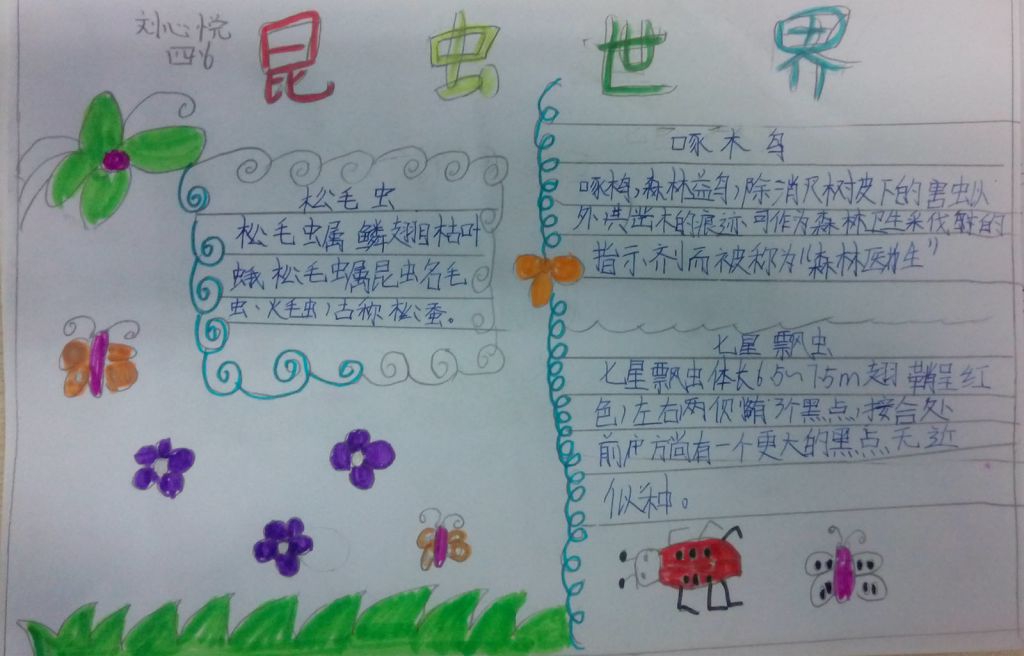 刘心悦
四6
昆虫世界
松毛虫
松毛虫属 鳞翅目枯叶
蛾 松毛虫属昆虫名毛
虫、火毛虫，古称松蚕。
啄木鸟
啄木鸟，森林益鸟，除消灭树皮下的害虫以
外，其凿木的痕迹可作为森林卫生采伐的
指示剂而被称为“森林医生”
七星飘虫
七星飘虫体长6.5～7.5m翅鞘呈红
色，左右两侧有3个黑点，接合处
前方尚有一个更大的黑点无近
似种。